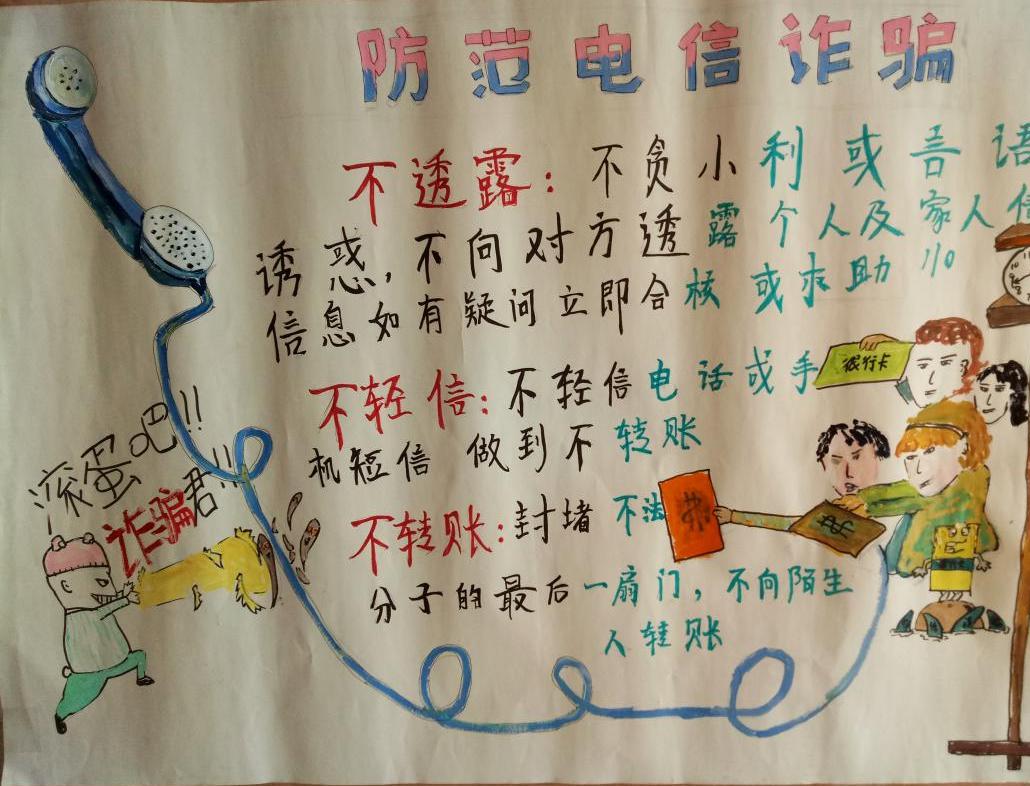 防范电信诈骗
不透露：不贪小利或吾语
诱惑，不向对方透露个人及家人信
信息如有疑问立即合核或求助110
不轻信：不轻信电话或手
银行卡
机短信 做到不转账
滚蛋吧!!
诈骗君!!
不转账：封堵 不法
分子的最后一扇门，不向陌生
人转账